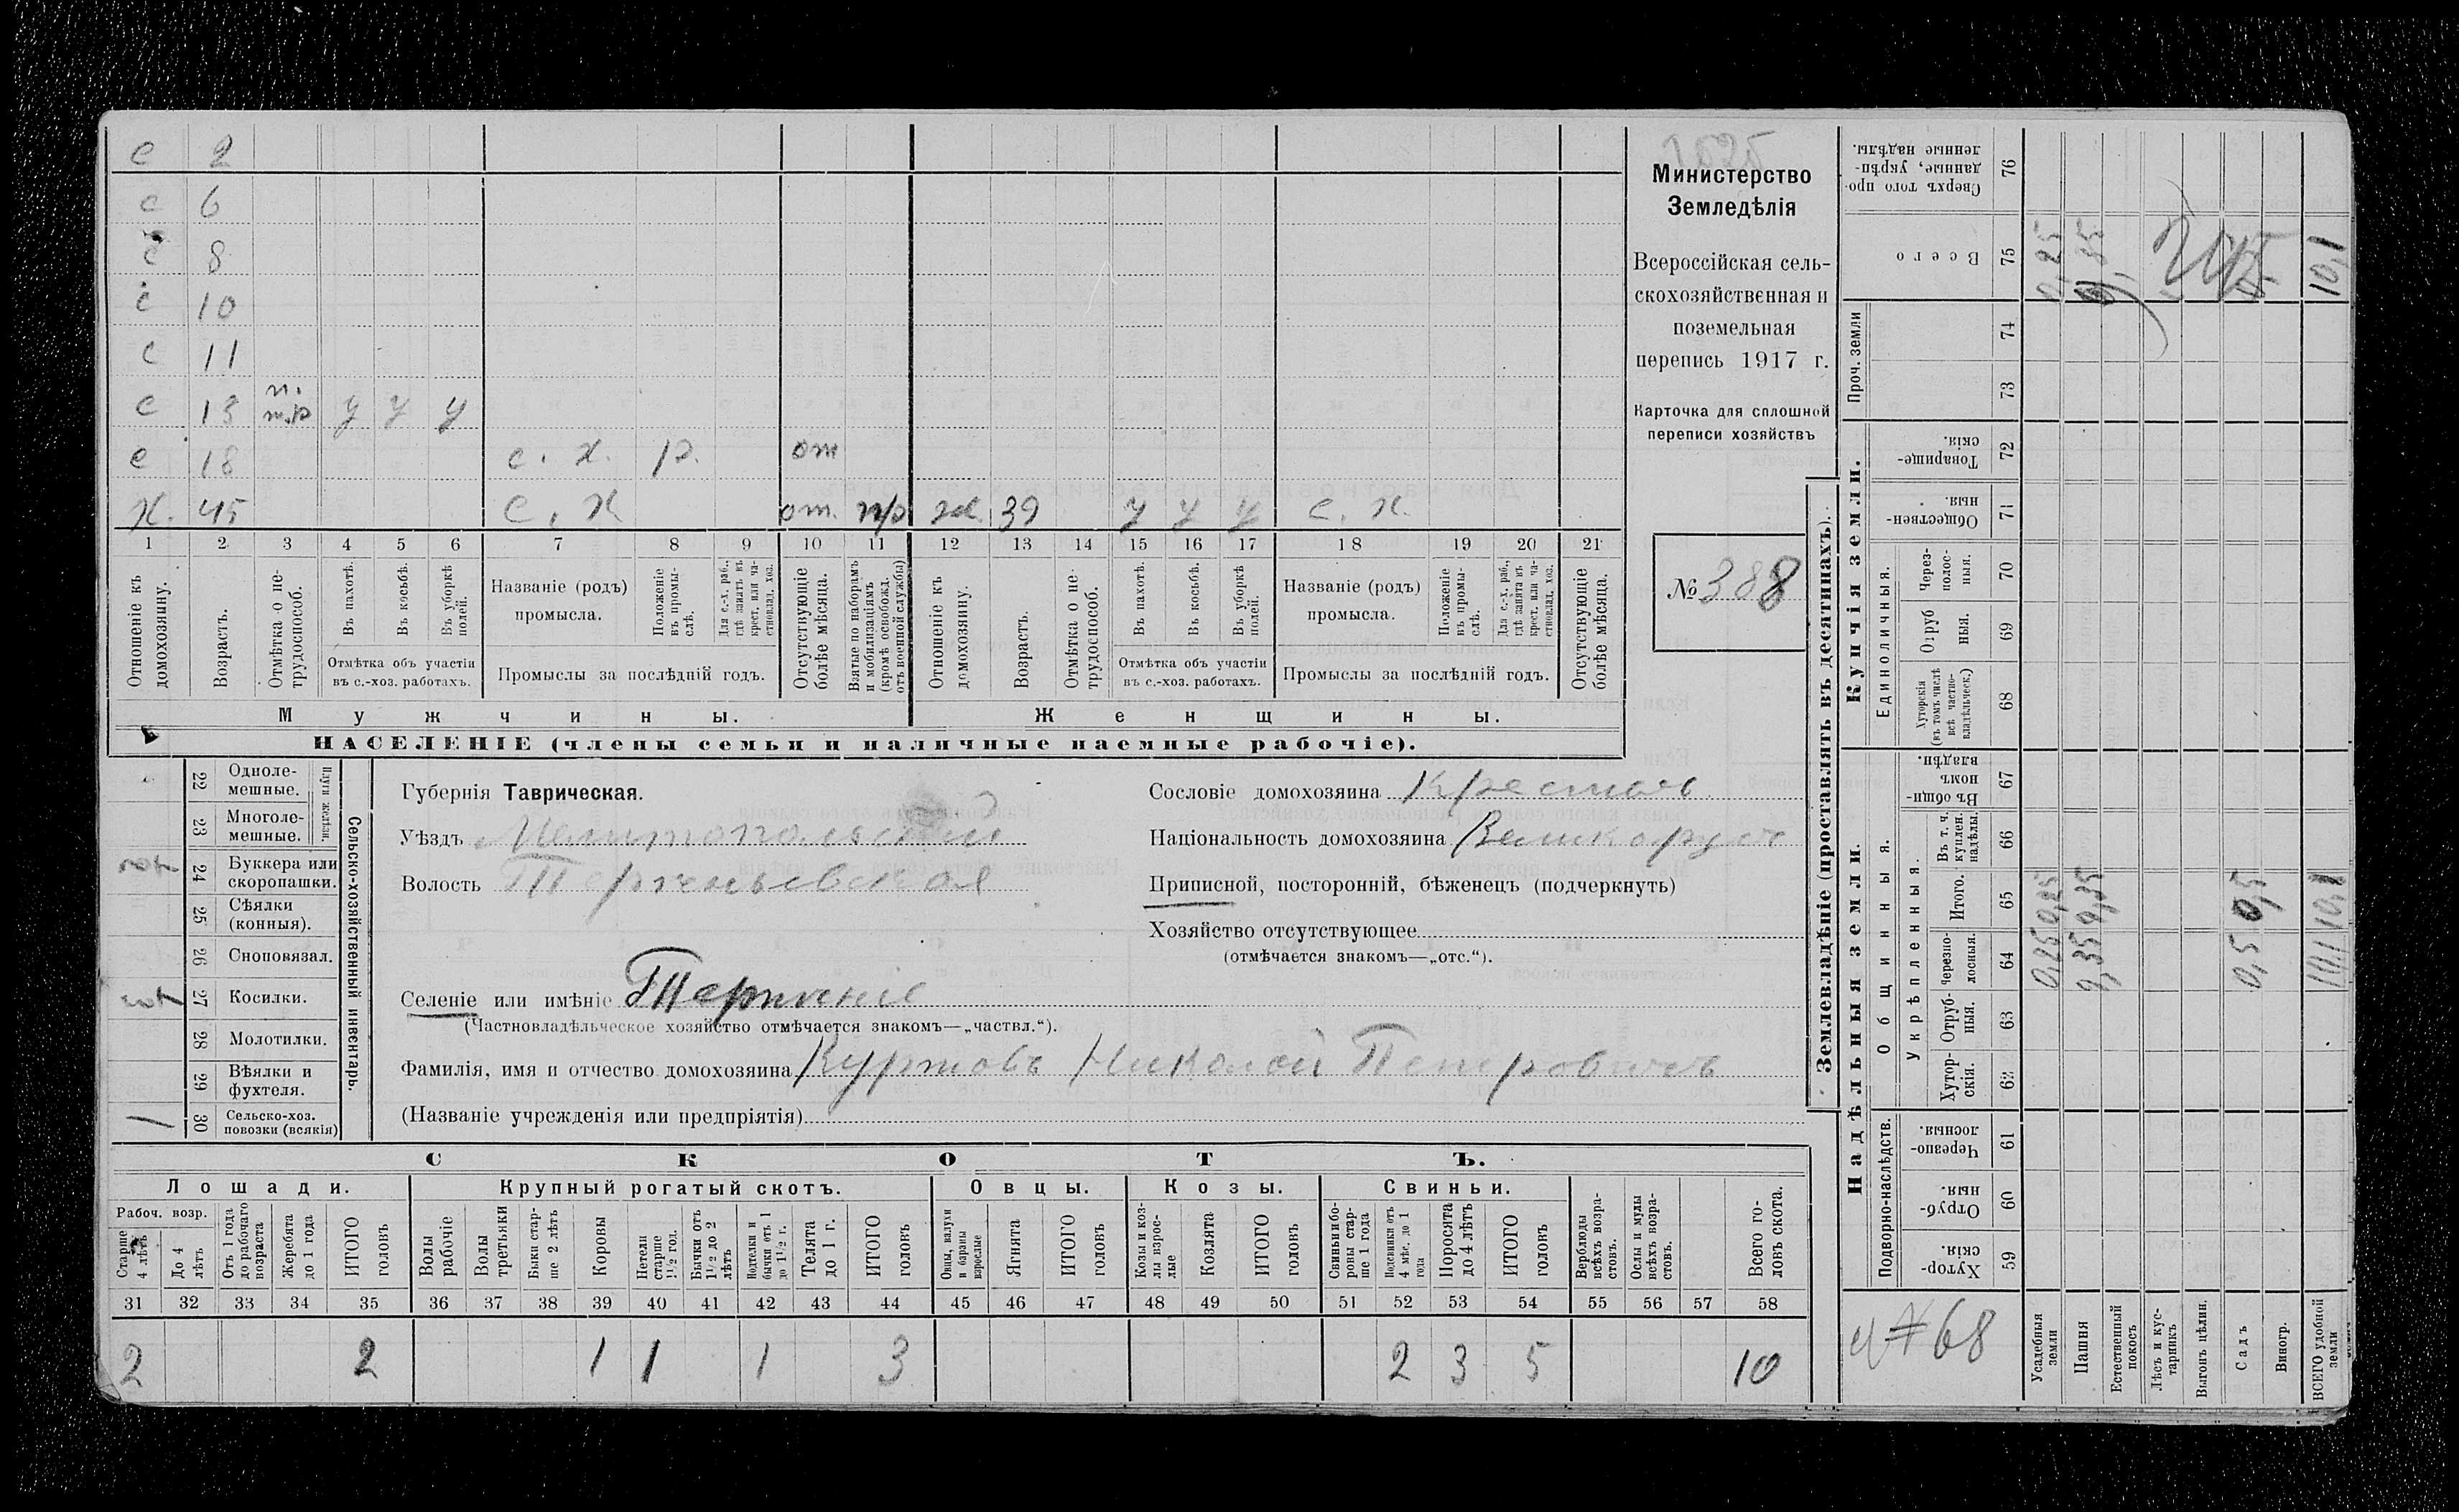 с 2
с 6
с 8
с 10
с 11
с 13 п. т.р у у у
с 18 с. х. р. от
х. 45 с. х от. п/р ж. 39 у у у с. х.
1 2 3 4 5 6 7 8 9 10 11 12 13 14 15 16 17 18 19 20 21
Отношеніе къ домохозяину.
Возрастъ.
Отмѣтка о нетрудоспособ.
Въ пахотѣ.
Въ косьбѣ.
Въ уборкѣ полей.
Отмѣтка объ участіи въ с.-хоз. работахъ.
Названіе (родъ) промысла.
Положеніе въ промыслѣ.
Для с.-х. раб., гдѣ занятъ въ крест. или частновлад. хоз.
Промыслы за послѣдній годъ.
Отсутствующіе болѣе мѣсяца.
Взятые по наборамъ и мобилизаціямъ (кромѣ освобожд. отъ военной службы)
Отношеніе къ домохозяину.
Возрастъ.
Отмѣтка о нетрудоспособ.
Въ пахотѣ.
Въ косьбѣ.
Въ уборкѣ полей.
Отмѣтка объ участіи въ с.-хоз. работахъ.
Названіе (родъ) промысла.
Положеніе въ промыслѣ.
Для с.-х. раб., гдѣ занята въ крест. или частновлад. хоз.
Промыслы за послѣдній годъ.
Отсутствующіе болѣе мѣсяца.
Мужчины. Женщины.
НАСЕЛЕНІЕ (члены семьи и наличные наемные рабочіе).
1525
Министерство
Земледѣлія
Всероссійская сель-
скохозяйственная и
поземельная
перепись 1917 г.
Карточка для сплошной
переписи хозяйствъ
№ 388
Сельско-хозяйственный инвентарь.
22 Одноле-мешные.
23 Многоле-мешные.
24 Буккера или скоропашки.
25 Сѣялки (конныя).
26 Сноповязал.
27 Косилки.
28 Молотилки.
29 Вѣялки и фухтеля.
1 30 Сельско-хоз. повозки (всякія)
Губернія Таврическая.
Уѣздъ Мелитопольскій
Волость Терпеньевская
Селеніе или имѣніе Терпеніе
(Частновладѣльческое хозяйство отмѣчается знакомъ—„частвл.“).
Фамилія, имя и отчество домохозяина Куртовъ Николай Петровичъ
(Названіе учрежденія или предпріятія)
Сословіе домохозяина Крестьян
Національность домохозяина Великорусс
Приписной, посторонній, бѣженецъ (подчеркнуть)
Хозяйство отсутствующее
(отмѣчается знакомъ—„отс.“).
СКОТЪ.
Лошади. Крупный рогатый скотъ. Овцы. Козы. Свиньи.
Рабоч. возр.
Старше 4 лѣтъ
До 4 лѣтъ
Отъ 1 года до рабочаго возраста
Жеребята до 1 года
ИТОГО головъ
Волы рабочіе
Волы третьяки
Быки старше 2 лѣтъ
Коровы
Нетели старше 1½ год.
Бычки отъ 1½ до 2 лѣтъ
Телята до 1 г.
ИТОГО головъ
Овцы, валухи и бараны взрослые
Ягнята
ИТОГО головъ
Козы и козлы взрослые
Козлята
ИТОГО головъ
Свиньи и боровы старше 1 года
Подсвинки отъ 4 мѣс. до 1 года
Поросята до 4 лѣтъ
ИТОГО головъ
Верблюды всѣхъ возрастовъ.
Ослы и мулы всѣхъ возрастовъ.
Всего головъ скота.
31 32 33 34 35 36 37 38 39 40 41 42 43 44 45 46 47 48 49 50 51 52 53 54 55 56 57 58
2 2 1 1 1 3 2 3 5 10
Землевладѣніе (проставлять въ десятинахъ).
Купчія земли.
Надѣльныя земли.
Сверхъ того проданные, укрѣпленные надѣлы. 76
Всего 75 0,25 9,35 10,1
Проч. земли 74 73
Товарищескія. 72
Общественныя. 71
Единоличныя.
Черезполосныя. 70
Отрубныя. 69
Хуторскія (въ томъ числѣ всѣ частновладѣльческ.) 68
Общинныя.
Въ общинномъ владѣн. 67
Укрѣпленныя.
Въ т. ч. куплен. надѣлы. 66
Итого. 65 0,25 9,35 0,5 10,1
Черезполосныя. 64 0,25 9,35 0,5 10,1
Отрубныя. 63
Хуторскія. 62
Подворно-наслѣдств.
Черезполосныя. 61
Отрубныя. 60
Хуторскія. 59
68
Усадебныя земли
Пашня
Естественный покосъ
Лѣсъ и кустарникъ
Выгонъ цѣлин.
Садъ
Виногр.
ВСЕГО удобной земли